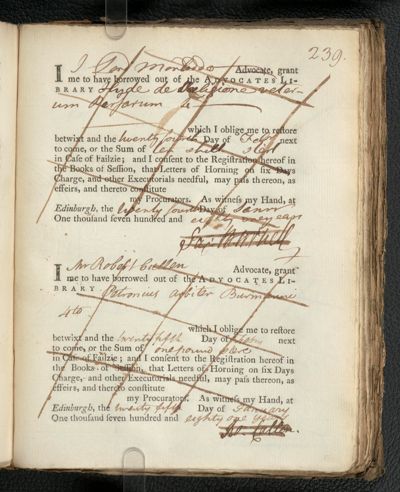 239.
I Advocate, grant
me to have borrowed out of the ADVOCATES LI-
BRARY Hyde de Religione veter-
um Persarum 4to
which I oblige me to restore
betwixt and the twenty Day of Feby next
to come, or the Sum of ten shill. sterl
in Case of Failzie; and I consent to the Registration hereof in
the Books of Session, that Letters of Horning on six Days
Charge, and other Executorials needful, may pass thereon, as
effeirs, and thereto constitute
my Procurators. As witness my Hand, at
Edinburgh, the twenty Day of Janry
One thousand seven hundred and eighty one years
I Mr Robert Cullen Advocate, grant
me to have borrowed out of the ADVOCATES LI-
BRARY Petronius arbiter
4to.
which I oblige me to restore
betwixt and the twenty fifth Day of next
to come, or the Sum of one pound
in Case of Failzie; and I consent to the Registration hereof in
the Books of Session, that Letters of Horning on six Days
Charge, and other Executorials needful, may pass thereon, as
effeirs, and thereto constitute
my Procurators. As witness my Hand, at
Edinburgh, the twenty fifth Day of January
One thousand seven hundred and eighty one years
Ro. Cullen